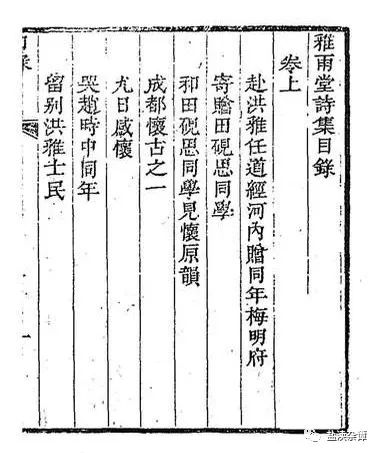 雅雨堂詩集目錄
卷上
赴洪雅任道經河內贈同年梅明府
寄贈田硯思同學
和田硯思同學見懷原韻
成都懷古之一
九日感懷
哭趙時中同年
留別洪雅士民